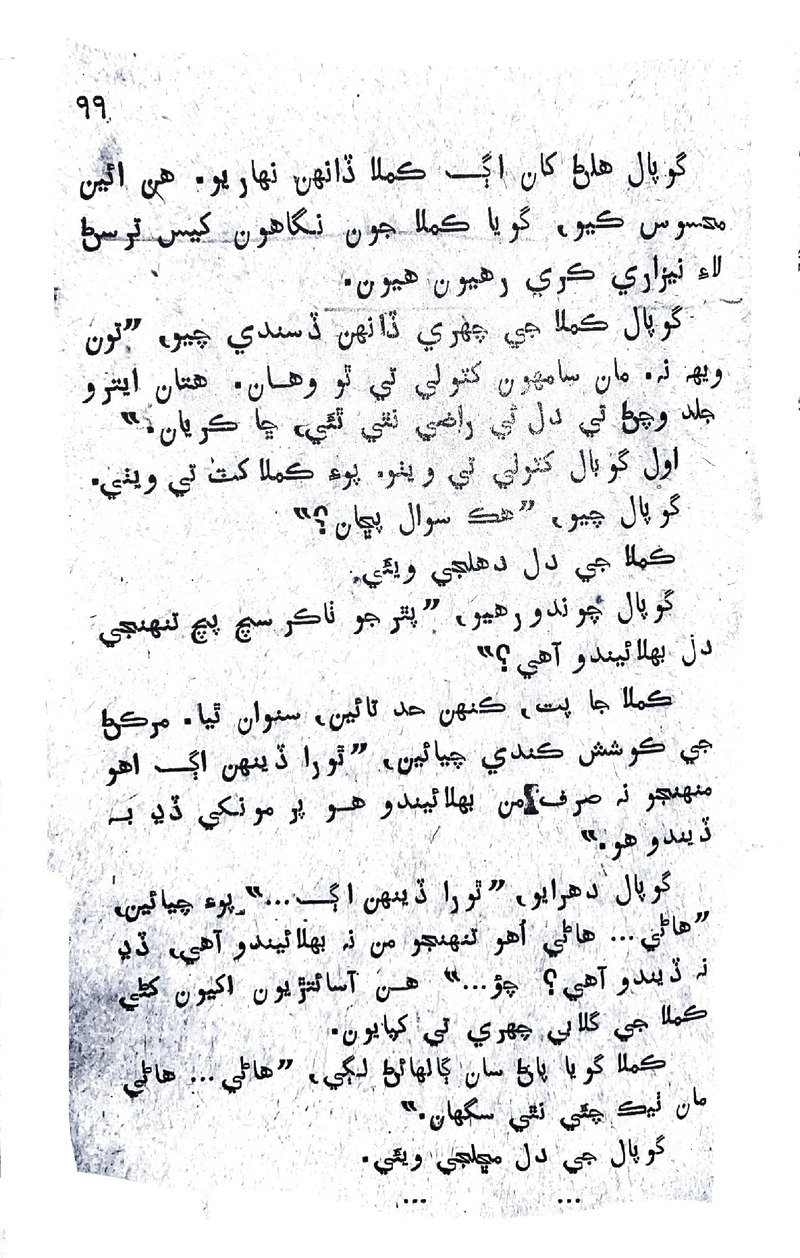 ۹۹
گوپال هلڻ کان اڳـــ ڪملا ڏانهن نهاريو. هن ائين
محسوس ڪيو، گويا ڪملا جون نگاهون کيس ترسڻ
لاءِ نيزاري ڪري رهيون هيون.
گوپال ڪملا جي چهري ڏانهن ڏسندي چيو، ”تون
ويهه نہ. مان سامهون کٽولي تي ٿو وهان. هتان ايترو
جلد وڃڻ تي دل ئي راضي نٿي ٿئي، ڇا ڪريان.“
اول گوپال کٽولي تي ويٺو. پوءِ ڪملا کٽ تي ويٺي.
گوپال چيو، ”هڪ سوال پڇان؟“
ڪملا جي دل دهلجي ويئي.
گوپال چوندو رهيو، ”پٿر جو ٺاڪر سچ پچ تنهنجي
دل بهلائيندو آهي؟“
ڪملا جا پٽ، ڪنهن حد تائين، سنوان ٿيا. مرڪڻ
جي ڪوشش ڪندي چيائين، ”ٿورا ڏينهن اڳـــ اهو
منهنجو نہ صرف من بهلائيندو هو پر مونکي ڏڍ بہ
ڏيندو هو.“
گوپال دهرايو، ”ٿورا ڏينهن اڳـــ...“ پوءِ چيائين،
”هاڻي... هاڻي اُهو تنهنجو من نہ بهلائيندو آهي، ڏڍ
نہ ڏيندو آهي؟ چؤ...“ هن آسائتڙيون اکيون کڻي
ڪملا جي گلابي چهري تي کپايون.
ڪملا گويا پاڻ سان ڳالهائڻ لڳي، ”هاڻي... هاڻي
مان ٺيڪ چئي نٿي سگهان.“
گوپال جي دل مڇلجي ويئي.
... ...